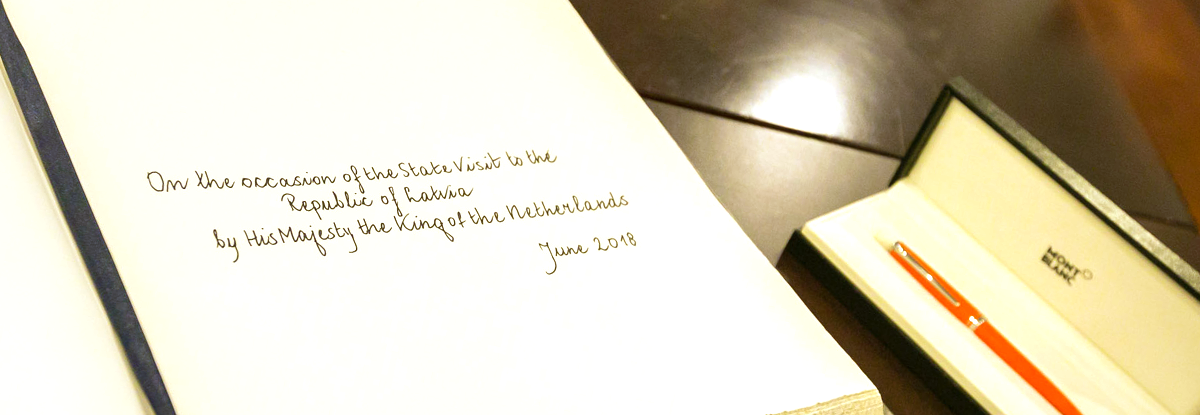 On the occasion of the State Visit to the
Republic of Latvia
by His Majesty the King of the Netherlands
June 2018
MONT
BLANC